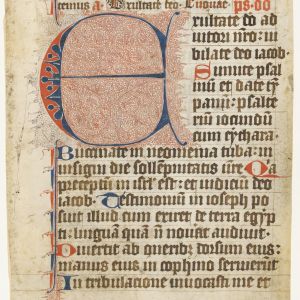 temus A. Exultate deo. Euouae. ps. dd
Exultate deo ad
iutori nr̄o: iu
bilate deo iacob.
Sumite psal
mū et date tȳ
panū: psalte
riū iocundū
cum cythara.
Buccinate in neomenia tuba: in
insigni die sollēpnitatis vr̄e. Q̄a
preceptū in isr̄l est: et iudiciū deo
iacob. Testimoniū in ioseph po
suit illud cum exiret de terra egyp
ti: linguā quā nō nouerat audiuit.
Diuertit ab onerib; dorsum eius:
manus eius in cophino seruierūt
In tribulacione inuocasti me et